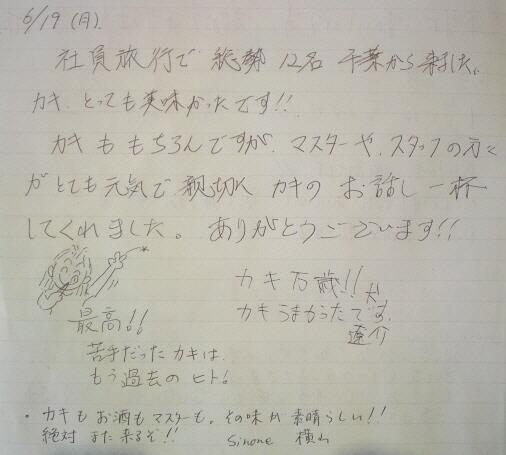 6/19(月).
社員旅行で 総勢 12名 千葉から来ました。
カキ とっても美味かったです!!
カキももちろんですが、マスターや、スタッフの方々
がとても元気で親切く カキの お話し一杯
してくれました。ありがとうございます!!
カキ万歳!!
カキうまかったです。
遼介
最高!!
苦手だったカキは
もう過去のヒト!
・カキもお酒もマスターも、その味が素晴らしい!!
絶対 また来るぞ!! Sinone 横山